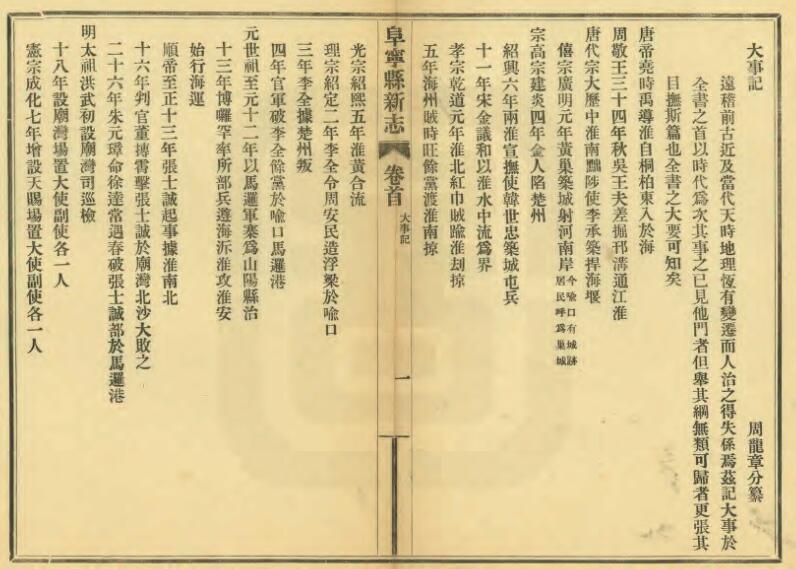 大事記　周龍章分纂
遠稽前古近及當代天時地理恆有變遷而人治之得失係焉茲記大事於
全書之首以時代爲次其事之已見他門者但舉其綱無類可歸者更張其
目撫斯篇也全書之大要可知矣
唐帝堯時禹導淮自桐柏東入於海
周敬王三十四年秋吳王夫差掘邗溝通江淮
唐代宗大歷中淮南黜陟使李承築捍海堰
僖宗廣明元年黃巢築城射河南岸今喻口有城跡居民呼爲巢城
宗高宗建炎四年金人陷楚州
紹興六年兩淮宣撫使韓世忠築城屯兵
十一年宋金議和以淮水中流爲界
孝宗乾道元年淮北紅巾賊踰淮刦掠
五年海州賊時旺餘黨渡淮南掠
阜寧縣新志
卷首
大事記
一
光宗紹熙五年淮黃合流
理宗紹定二年李全令周安民造浮梁於喻口
三年李全據楚州叛
四年官軍破李全餘黨於喻口馬邏港
元世祖至元十二年以馬邏軍寨爲山陽縣治
十三年博囉罕率所部兵遵海泝淮攻淮安
始行海運
順帝至正十三年張士誠起事據淮南北
十六年判官董摶霄擊張士誠於廟灣北沙大敗之
二十六年朱元璋命徐達常遇春破張士誠部於馬邏港
明太祖洪武初設廟灣司巡檢
十八年設廟灣場置大使副使各一人
憲宗成化七年增設天賜場置大使副使各一人